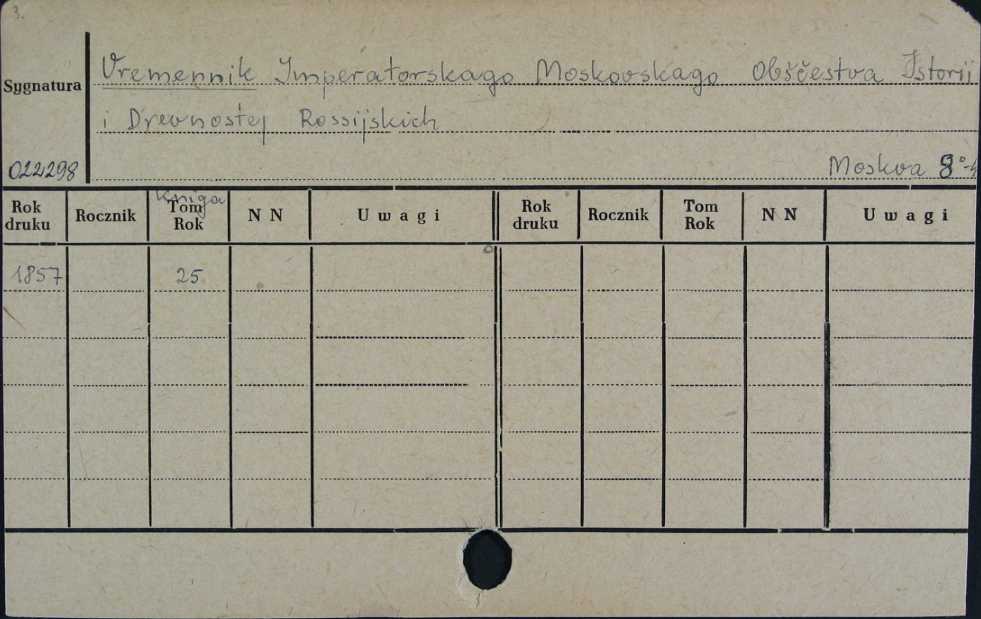 3.
Vremennik Imperatorskago Moskovskago Obščestva Istorij
Sygnatura
i Drevnostej Rossijskich
022298
Moskva 8°
Kniga
Rok druku Rocznik Tom Rok N N Uwagi Rok druku Rocznik Tom Rok N N Uwagi
1857 25